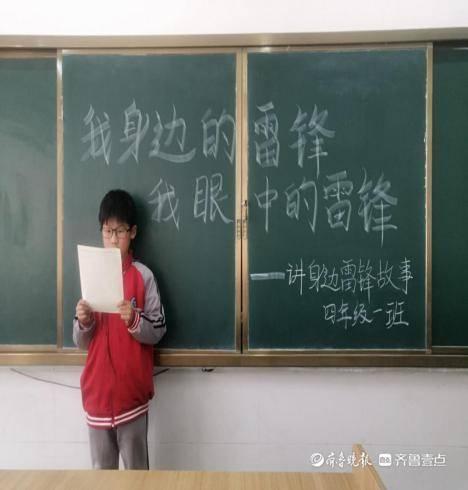 我身边的雷锋
我眼中的雷锋
——讲身边雷锋故事
四年级一班
齐鲁晚报 齐鲁壹点